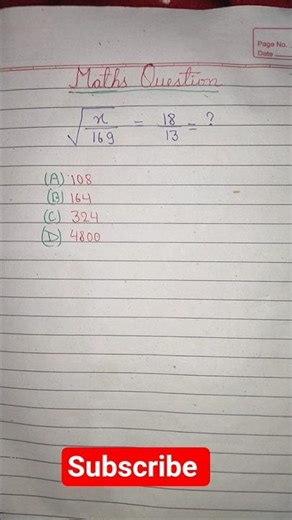 Page No.
Date
Maths Question
√x/169 = 18/13 = ?
(A) 108
(B) 164
(C) 324
(D) 4800
Subscribe